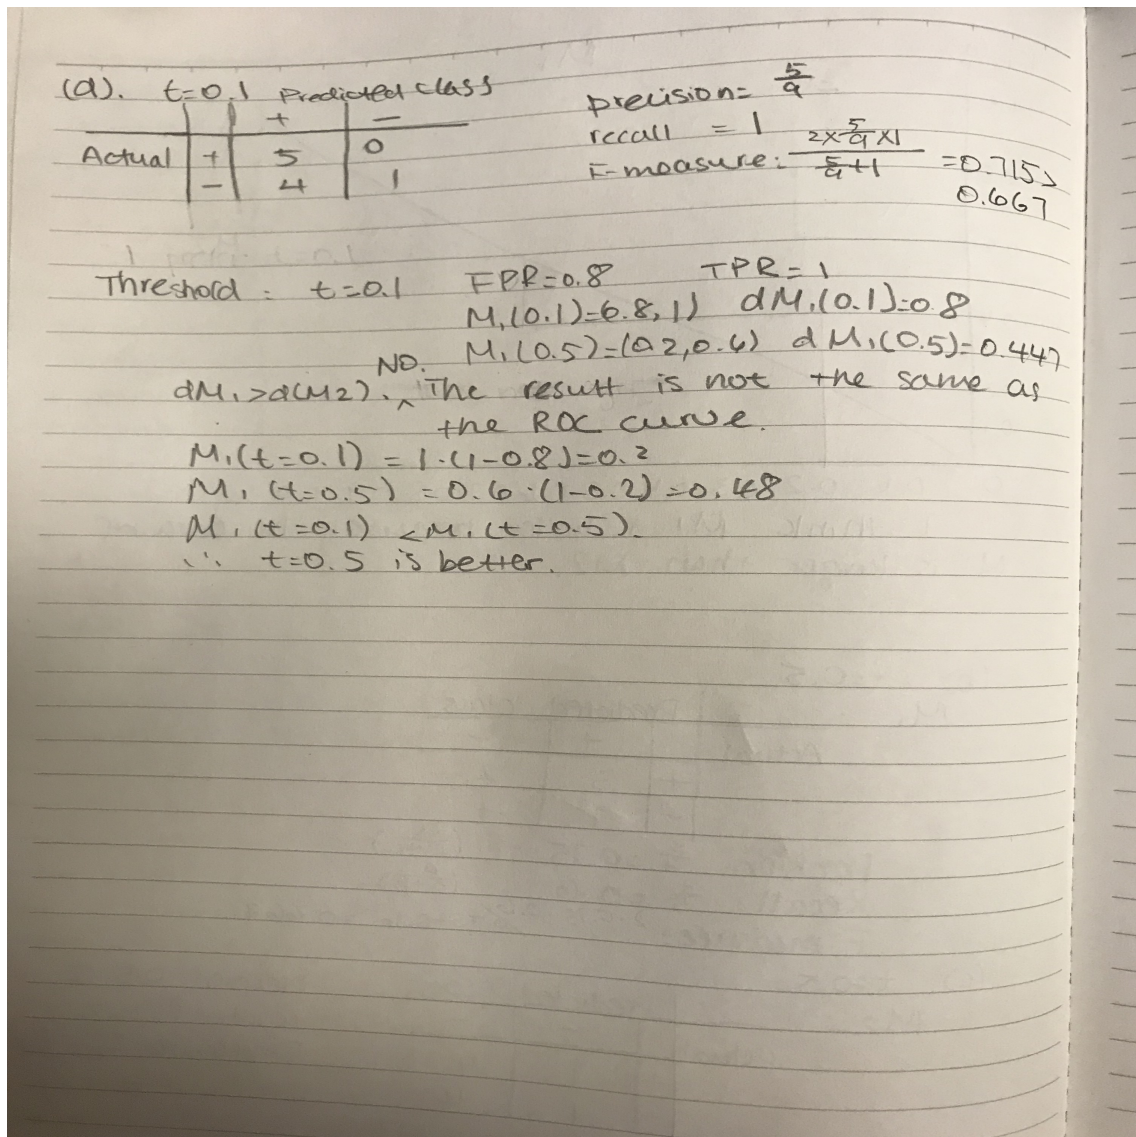 (d). t=0.1 Predicted class
+ −
Actual + 5 0
− 4 1
precision= 5/9
recall = 1
F-measure: (2×5/9×1)/(5/9+1) =0.715>
0.667
Threshold: t=0.1 FPR=0.8 TPR=1
M1(0.1)=(0.8,1) dM1(0.1)=0.8
M1(0.5)=(0.2,0.6) dM1(0.5)=0.447
NO.
dM1>d(M2). ^ The result is not the same as
the ROC curve.
M1(t=0.1) = 1·(1-0.8)=0.2
M1(t=0.5) = 0.6·(1-0.2)=0.48
M1(t=0.1) <M1(t=0.5).
∴ t=0.5 is better.